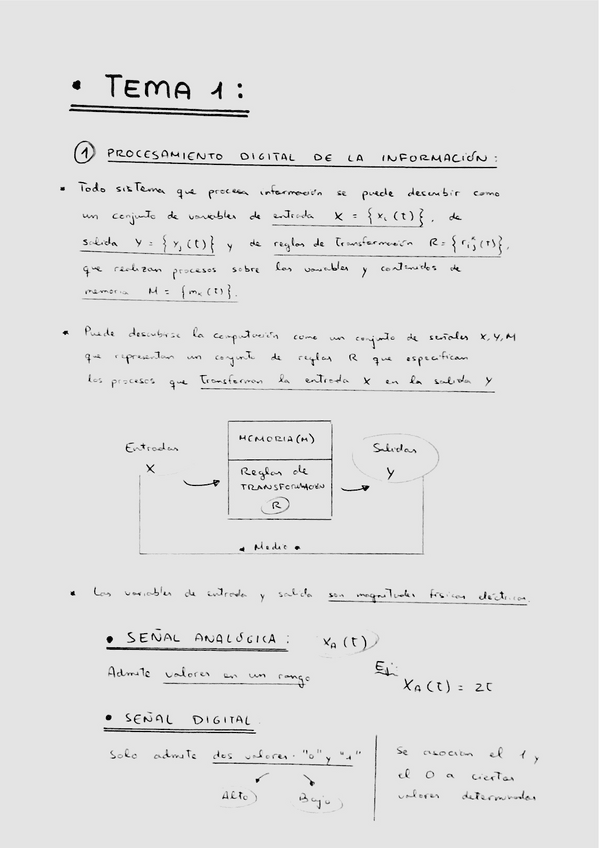 • TEMA 1:
① PROCESAMIENTO DIGITAL DE LA INFORMACIÓN:
▪ Todo sistema que procesa información se puede describir como
un conjunto de variables de entrada X = {xᵢ(t)}, de
salida Y = {yⱼ(t)} y de reglas de transformación R = {rᵢⱼᵏ(t)},
que realizan procesos sobre las variables y contenidos de
memoria M = {mₖ(t)}.
▪ Puede describirse la computación como un conjunto de señales X,Y,M
que representan un conjunto de reglas R que especifican
los procesos que transforman la entrada X en la salida Y
Entradas
X
MEMORIA (M)
Reglas de
TRANSFORMACIÓN
R
Salidas
Y
Medio
▪ Las variables de entrada y salida son magnitudes físicas eléctricas.
• SEÑAL ANALÓGICA: X_A(t)
Admite valores en un rango
Ej: X_A(t) = 2t
• SEÑAL DIGITAL
Solo admite dos valores: "0" y "1"
Alto Bajo
Se asocian el 1 y
el 0 a ciertos
valores determinados